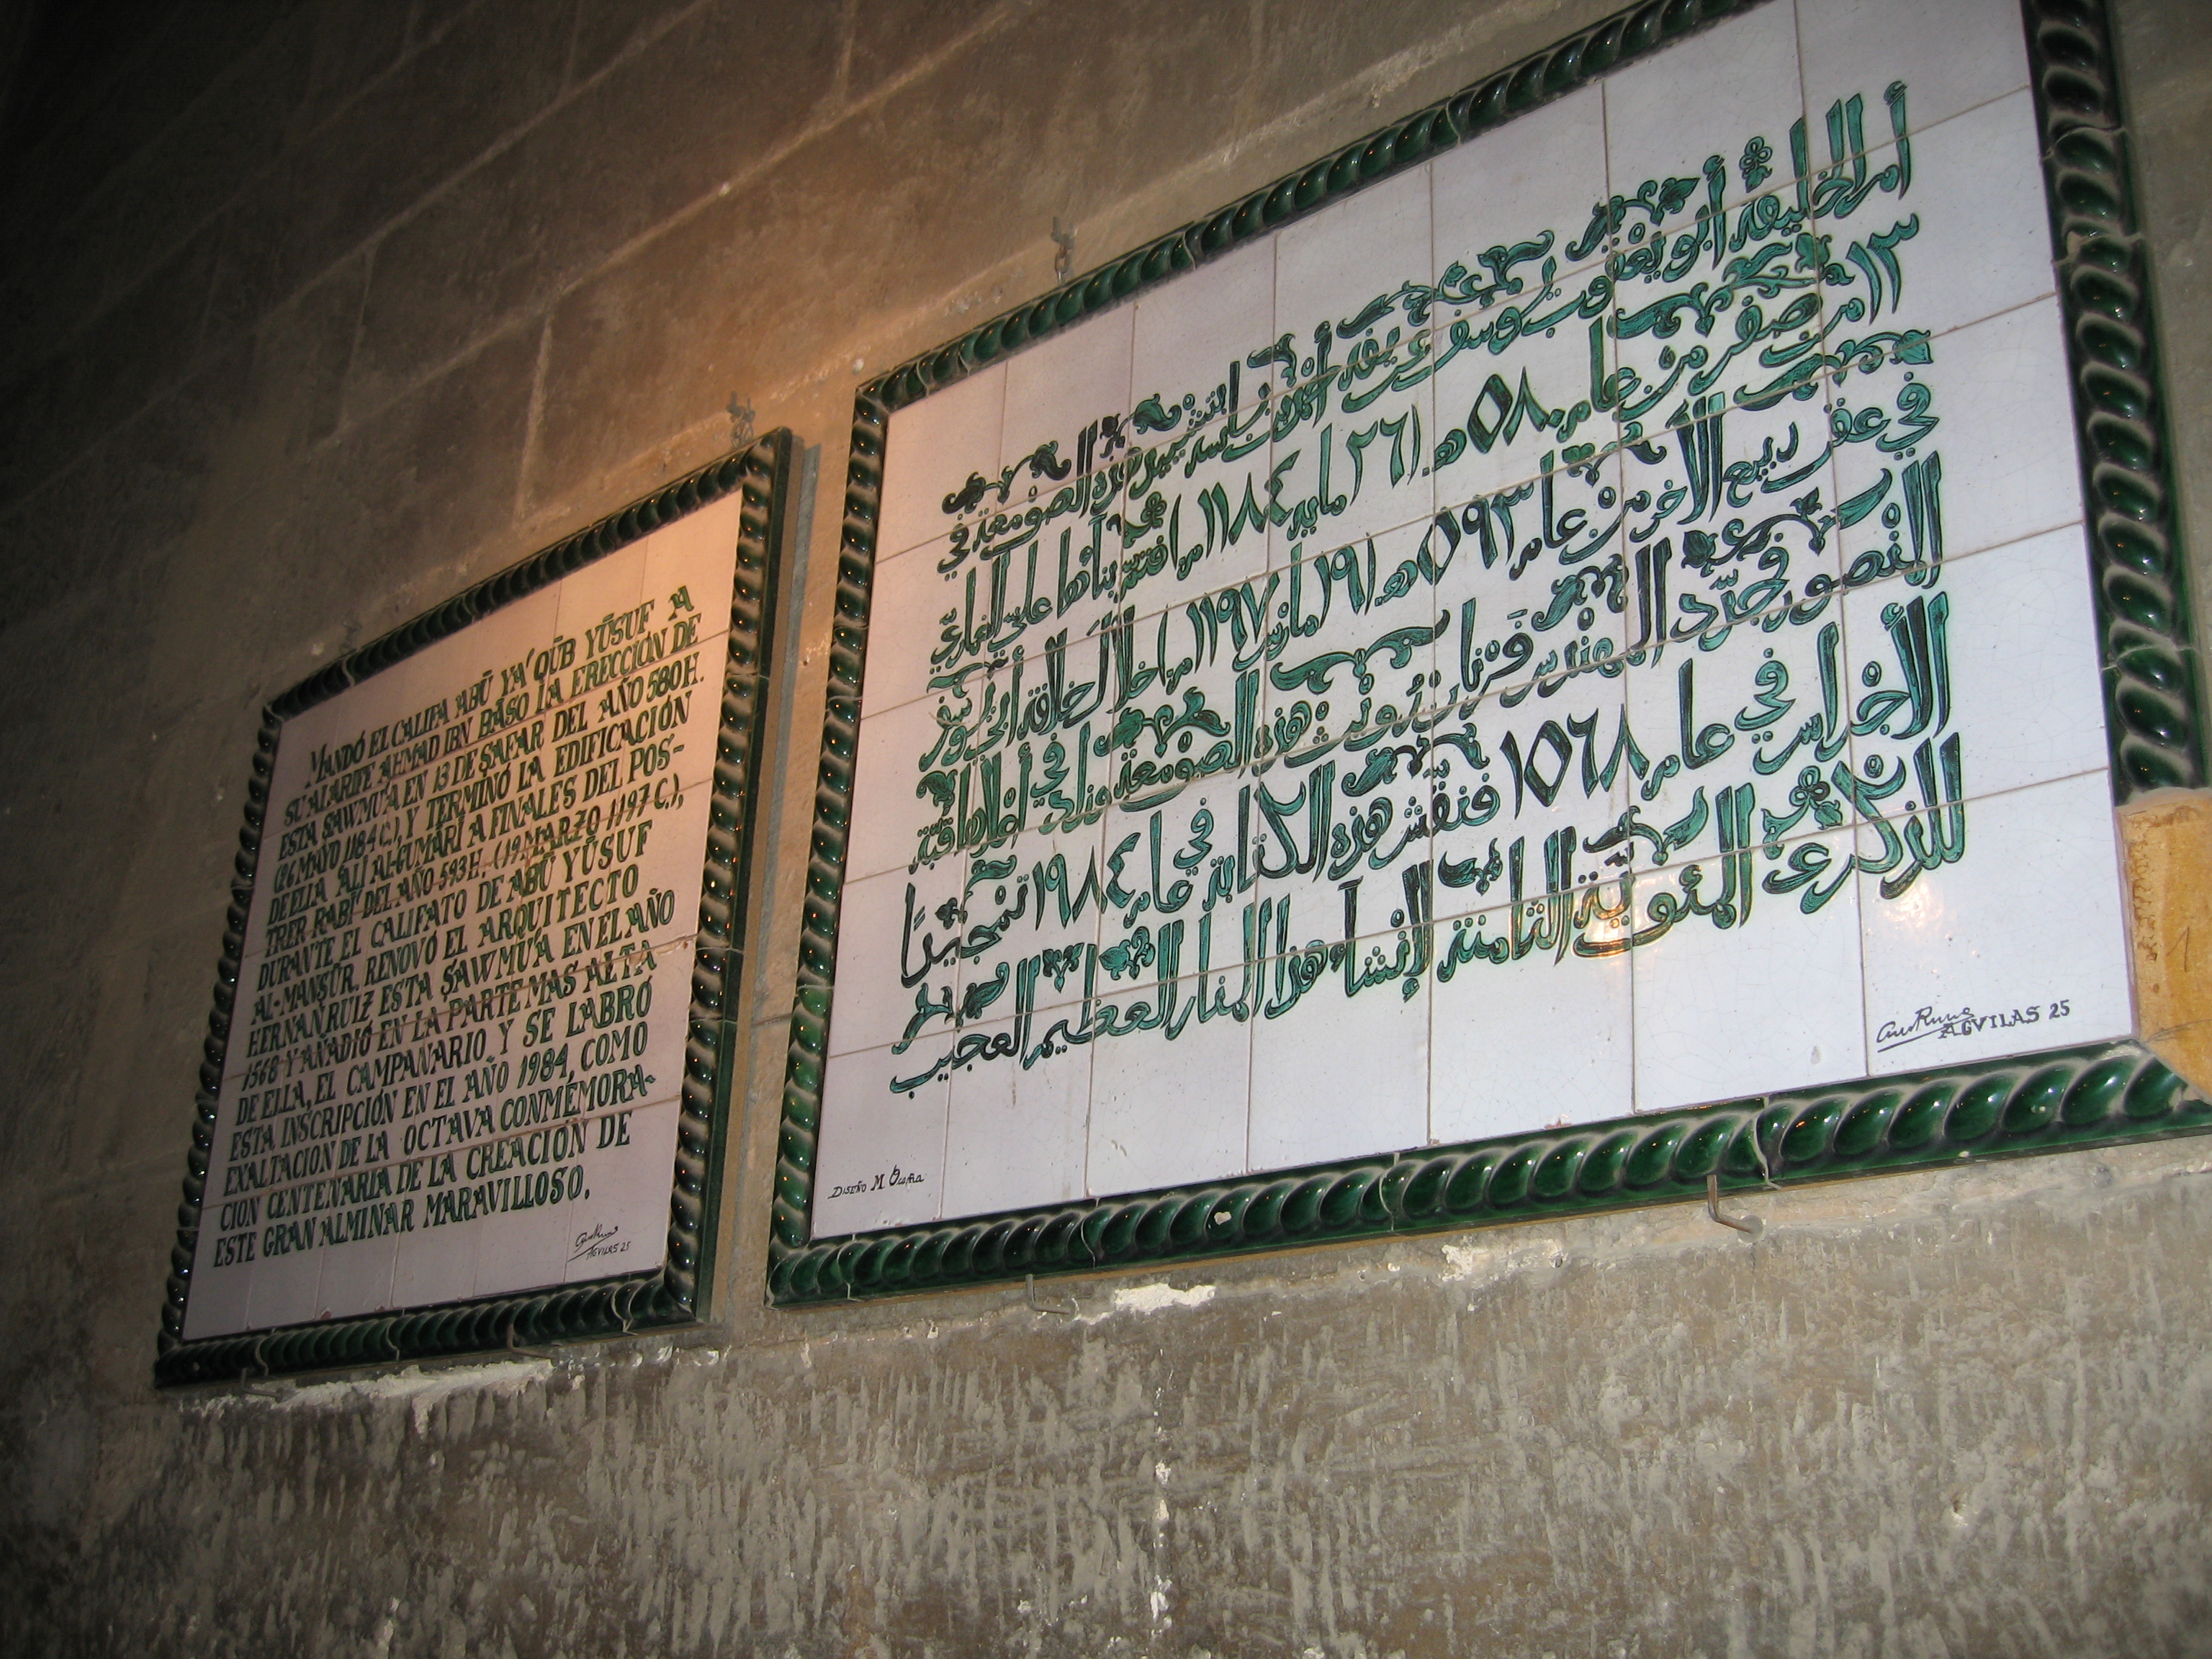 MANDÓ EL CALIFA ABŪ YA'QŪB YŪSUF A
SU ALARIFE AHMAD IBN BĀSO LA ERECCIÓN DE
ESTA ṢAWMU'A EN 13 DE ṢAFAR DEL AÑO 580 H.
(26 MAYO 1184 C.), Y TERMINÓ LA EDIFICACIÓN
DE ELLA 'ALĪ AL-GUMĀRĪ A FINALES DEL POS-
TRER RABĪ' DEL AÑO 593 H. (19 MARZO 1197 C.),
DURANTE EL CALIFATO DE ABŪ YŪSUF
AL-MANṢŪR. RENOVÓ EL ARQUITECTO
HERNAN RUIZ ESTA ṢAWMU'A EN EL AÑO
1568 Y AÑADIÓ EN LA PARTE MAS ALTA
DE ELLA, EL CAMPANARIO. Y SE LABRÓ
ESTA INSCRIPCIÓN EN EL AÑO 1984, COMO
EXALTACION DE LA OCTAVA CONMEMORA-
CION CENTENARIA DE LA CREACIÓN DE
ESTE GRAN ALMINAR MARAVILLOSO.
AGVILAS 25
أمر الخليفة أبو يعقوب يوسف عريفه أحمد بن باسه بتشييد هذه الصومعة في
١٣ من صفر من عام ٥٨٠ هـ (٢٦ مايه ١١٨٤ م) فتمم بناءها علي الغماريّ
في عقب ربيع الآخر من عام ٥٩٣ هـ (١٩ مارس ١١٩٧ م) خلال خلافة أبي يوسف
المنصور فجدّد المهندس فرنان رويث هذه الصومعة وزاد في أعلاها قبة
الأجراس في عام ١٥٦٨ فنقش هذه الكتابة في عام ١٩٨٤ تمجيدًا
للذكرى المئويّة الثامنة لإنشاء هذا المنار العظيم العجيب
DISEÑO M. Ocaña
AGVILAS 25